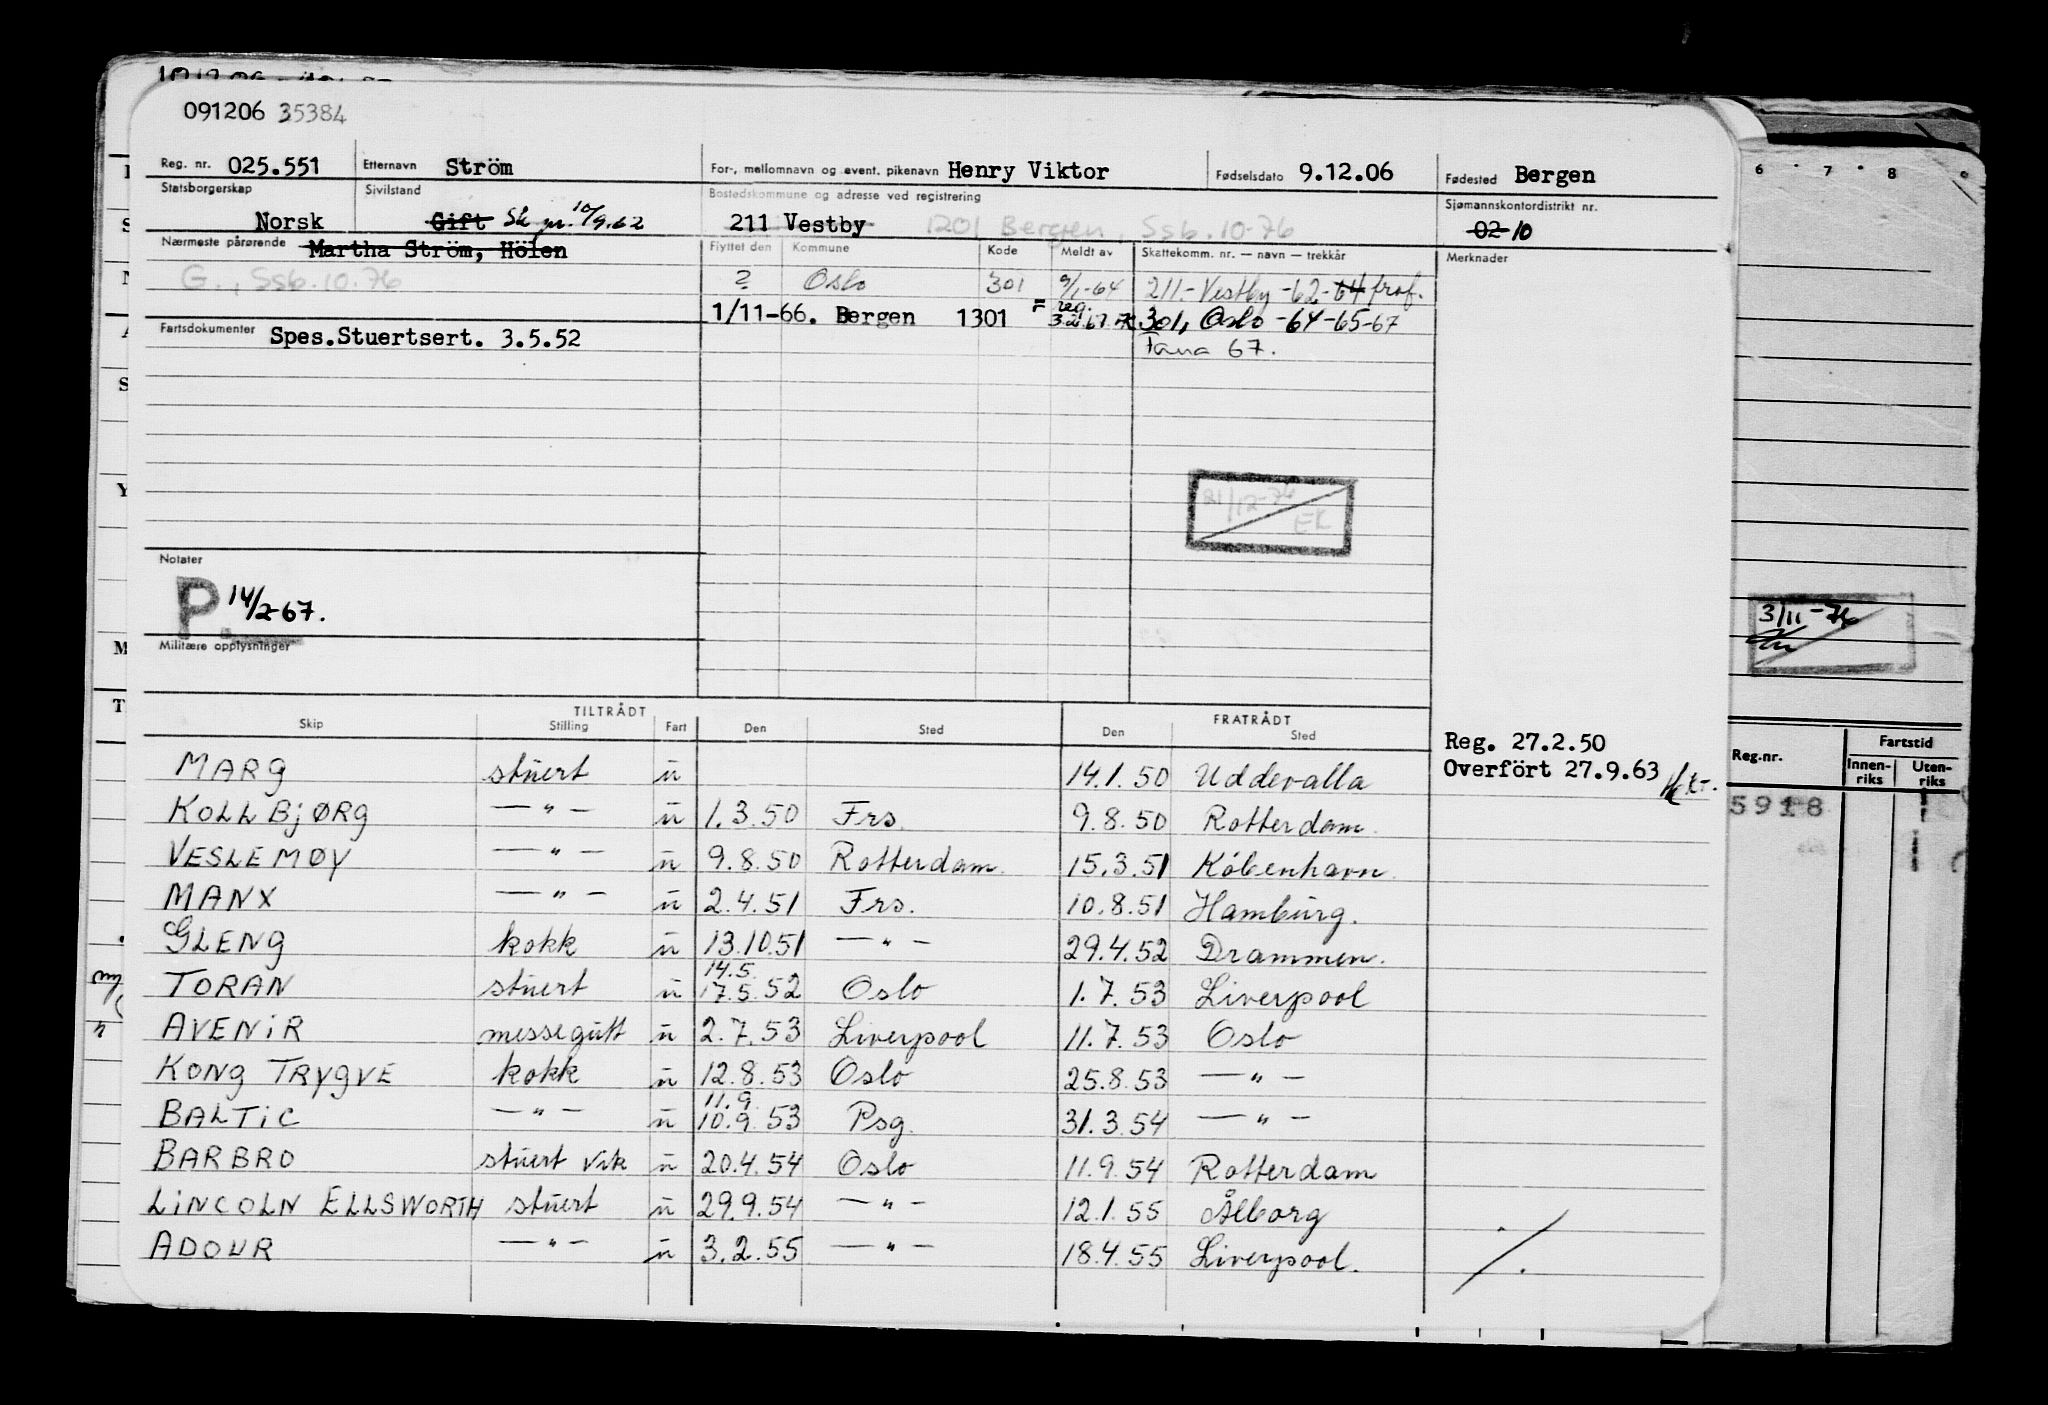 091206 35384
Reg. nr. 025.551 Etternavn Ström For-, mellomnavn og event. pikenavn Henry Viktor Fødselsdato 9.12.06 Fødested Bergen
Statsborgerskap Sivilstand Bostedskommune og adresse ved registrering Sjømannskontordistrikt nr.
Norsk Gift Sk. pr. 10/9.62 211 Vestby 1201 Bergen, Ssb. 10-76 02 10
Nærmeste pårørende Martha Ström, Hölen Flyttet den Kommune Kode Meldt av Skattekomm. nr. — navn — trekkår Merknader
G., Ssb. 10.76 ? Oslo 301 9/1-64 211.- Vestby -62-64 frof.
1/11-66. Bergen 1301 = reg. 301, Oslo -64-65-67
Fartsdokumenter Spes.Stuertsert. 3.5.52 Tana 67.
21/12-76
EK
Notater
P. 14/2-67.
Militære opplysninger
TILTRÅDT FRATRÅDT
Skip Stilling Fart Den Sted Den Sted
Reg. 27.2.50
Overfört 27.9.63
MARG stuert u 14.1.50 Uddevalla
KOLLBJØRG —"— u 1.3.50 Frs. 9.8.50 Rotterdam.
VESLEMØY —"— u 9.8.50 Rotterdam. 15.3.51 København.
MANX —"— u 2.4.51 Frs. 10.8.51 Hamburg.
GLENG kokk u 13.10.51 —"— 29.4.52 Drammen.
14.5.
TORAN stuert u 17.5.52 Oslo 1.7.53 Liverpool
AVENIR messegutt u 2.7.53 Liverpool 11.7.53 Oslo
KONG TRYGVE kokk u 12.8.53 Oslo 25.8.53 —"—
11.9.
BALTIC —"— u 10.9.53 Psg. 31.3.54 —"—
BARBRO stuert vik u 20.4.54 Oslo 11.9.54 Rotterdam
LINCOLN ELLSWORTH stuert u 29.9.54 —"— 12.1.55 Ålborg
ADOUR —"— u 3.2.55 —"— 18.4.55 Liverpool.
6 7 8
3/11-76
Reg.nr. Fartstid
Innen-riks Uten-riks
5918